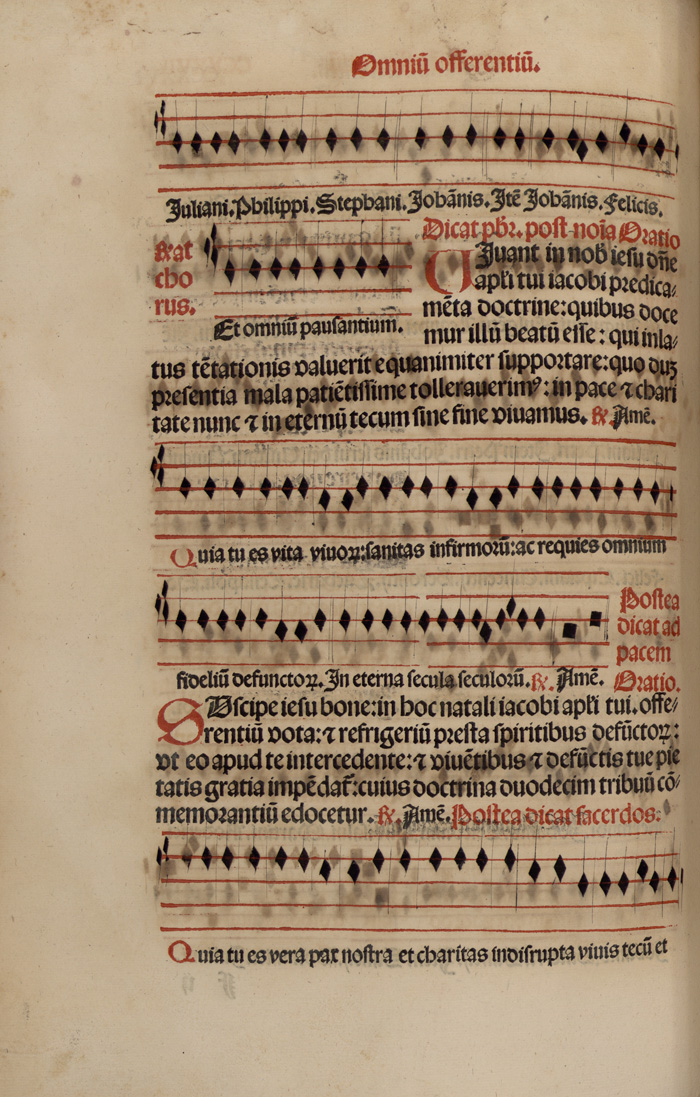 Omniū offerentiū.
Juliani. Philippi. Stephani. Johānis. Itē Johānis. Felicis.
℟at
cho
rus.
Et omniū pausantium.
Dicat pb̄r. post noīa Oratio
IUuant in nob̄ iesu dn̄e
apl̄i tui iacobi predica⸗
mēta doctrine: quibus doce
mur illū beatū esse: qui inla⸗
tus tētationis valuerit equanimiter supportare: quo dūꝫ
presentia mala patiētissime tollerauerimꝰ: in pace ⁊ chari
tate nunc ⁊ in eternū tecum sine fine viuamus. ℟. Amē.
Quia tu es vita viuoꝝ: sanitas infirmorū: ac requies omnium
Postea
dicat ad
pacem
fideliū defunctoꝝ. In eterna secula seculorū. ℟. Amē. Oratio.
SUscipe iesu bone: in hoc natali iacobi apl̄i tui. offe⸗
rentiū vota: ⁊ refrigeriū presta spiritibus defūctoꝝ:
vt eo apud te intercedente: ⁊ viuētibus ⁊ defūctis tue pie
tatis gratia impēdat̄: cuius doctrina duodecim tribuū cō⸗
memorantiū edocetur. ℟. Amē. Postea dicat sacerdos:
Quia tu es vera pax nostra et charitas indisrupta viuis tecū et